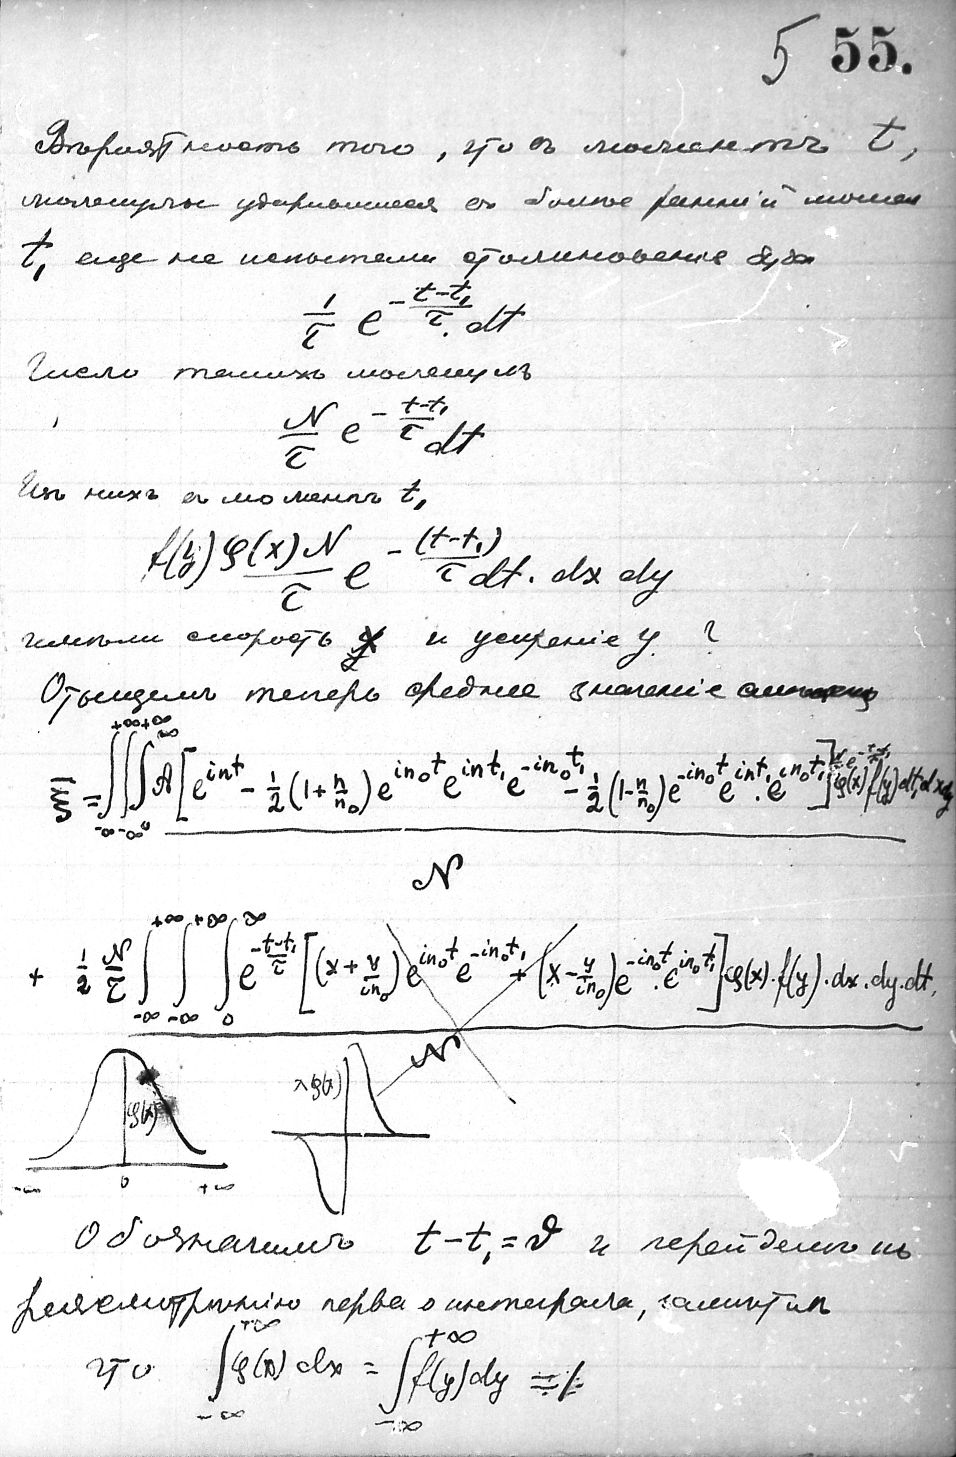 5 55.
Вѣроятность того, что въ моментъ t,
молекулы ударившiеся въ болѣе раннiй момен
t₁ еще не испытали столкновенiе буде
1/τ e^{-(t-t₁)/τ} dt
Число такихъ молекулъ
N/τ e^{-(t-t₁)/τ} dt
Изъ нихъ въ моментъ t₁
f(y) φ(x) N/τ e^{-(t-t₁)/τ} dt. dx dy
имѣли скорость x и ускренiе y ?
Отыщемъ теперь среднее значенiе
ξ̄ = ∫_{-∞}^{+∞} ∫_{-∞}^{+∞} ∫_0^∞ A [e^{int} - 1/2 (1 + n/n₀) e^{in₀t} e^{int₁} e^{-in₀t₁} - 1/2 (1 - n/n₀) e^{-in₀t} e^{int₁}. e^{in₀t₁}] N/τ e^{-(t-t₁)/τ} φ(x) f(y) dt₁ dx dy
N
+ 1/2 N/τ ∫_{-∞}^{+∞} ∫_{-∞}^{+∞} ∫_0^∞ e^{-(t-t₁)/τ} [(x + y/in₀) e^{in₀t} e^{-in₀t₁} + (x - y/in₀) e^{-in₀t}. e^{in₀t₁}] φ(x). f(y). dx. dy. dt₁
N
φ(x)
-∞ 0 +∞
xφ(x)
Обозначимъ t-t₁=ϑ и перейдемъ къ
разсмотрѣнiю перваго интеграла, замѣтивъ
что ∫_{-∞}^{+∞} φ(x) dx = ∫_{-∞}^{+∞} f(y) dy = 1.